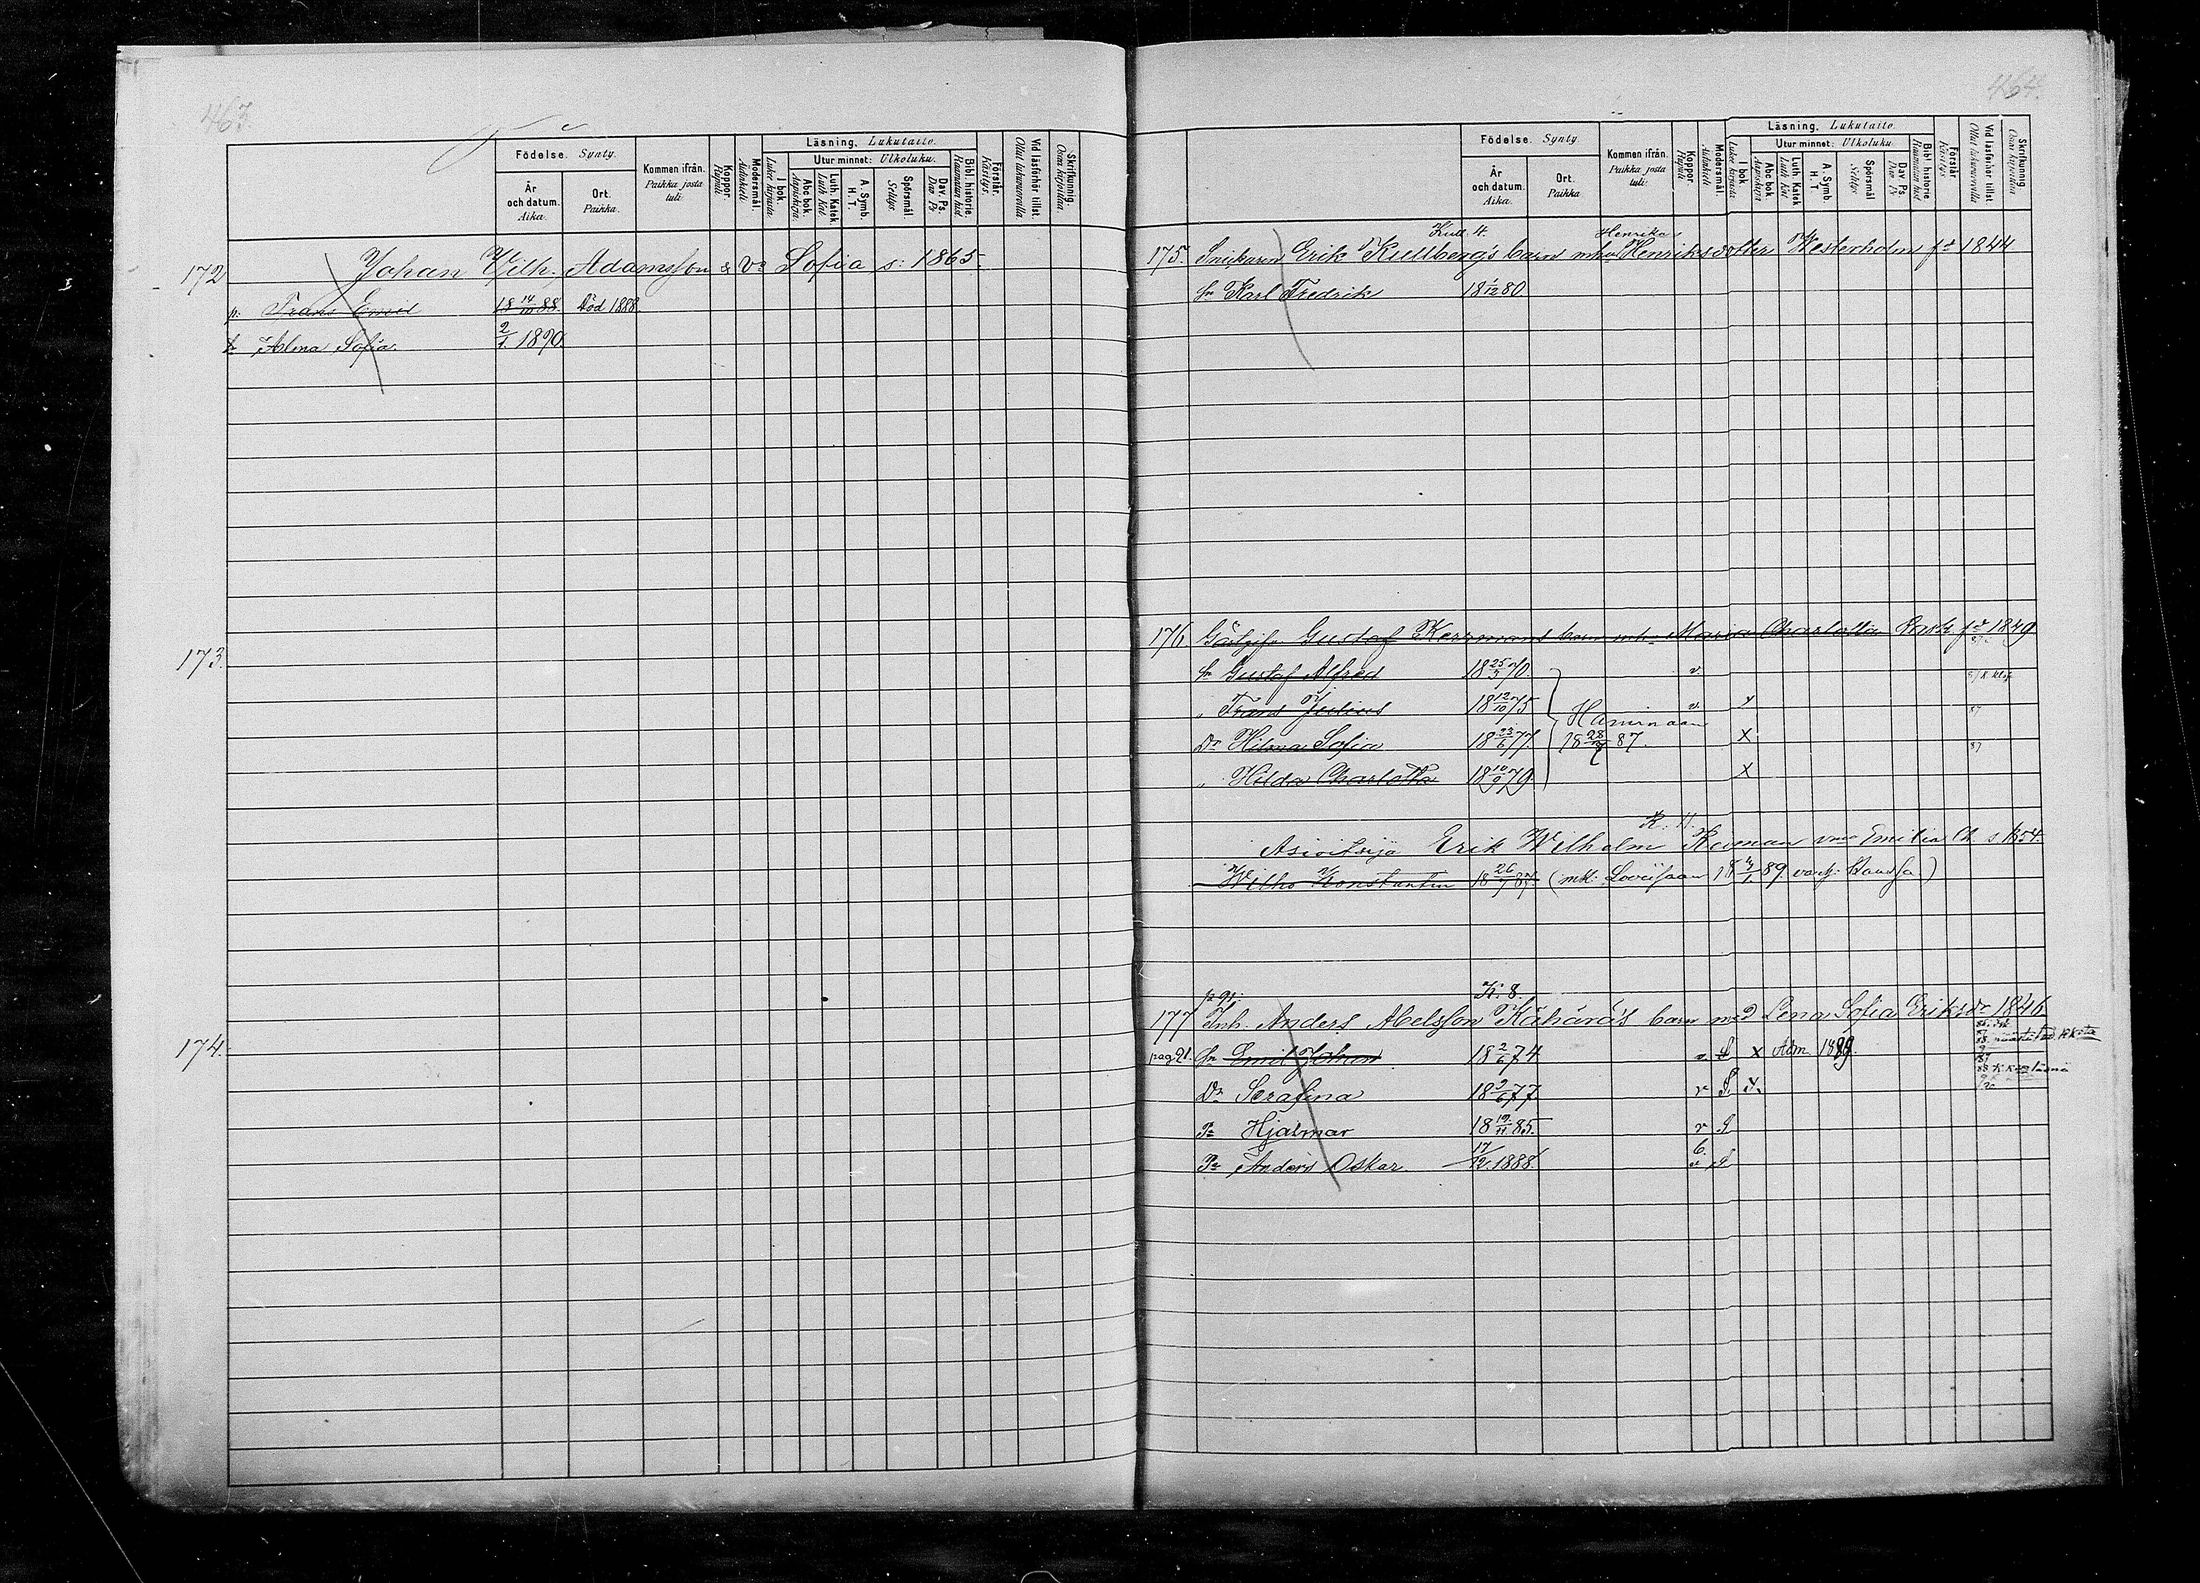 463.
Födelse. Synty.
År och datum. Aika.
Ort. Paikka.
Kommen ifrån. Paikka josta tuli.
Koppor. Rupuli
Modersmål. Äidinkieli
Läsning. Lukutaito.
I bok. Lukee kirjasta.
Utur minnet: Ulkoluku.
Abc bok. Aapiskirja
Luth. Katek. Luth. Kat.
A. Symb. H. T.
Spörsmål Selitys.
Dav. Ps. Dav. Ps
Bibl. historie. Raamatun hist.
Förstår. Käsitys.
Vid läsförhör tillst. Ollut lukuvuoroilla
Skrifkunnig. Osaa kirjoittaa.
172 Johan Wilh. Adamsson & Vo Sofiia s: 1865.
p. Frans Emil 18 14/10 88. Död 1888.
tr Alma Sofia. 2/1. 1890.
173.
174.
464.
Födelse. Synty
År och datum. Aika.
Ort. Paikka
Kommen ifrån. Paikka josta tuli.
Koppor. Rupuli
Modersmål. Äidinkieli
Läsning. Lukutaito.
I bok Lukee kirjasta
Utur minnet: Ulkoluku.
Abc bok. Aapiskirja
Luth. Katek Luth Kat
A. Symb H. T
Spörsmål Selitys
Dav. Ps. Dav Ps
Bibl historie Raamatun hist
Förstår Käsitys
Vid läsförhör tillst. Ollut lukuvuoroilla
Skrifkunnig Osaa kirjoittaa
Kull. 4. Henrika
175. Snickaren Erik Kullberg's barn mhu Henriksdotter Westerholm fd 1844
Sn Karl Fredrik 18 1/12 80.
176. Gustaf barn Maria Charlotta fd 1849
Sn Gustaf Alfred 18 25/3 70. v.
" Frans Julius 18 12/10 75 v.
Haminaan
Dr Hilma Sofia 18 23/6 77. 18 28/7 87. X
" Hilda Charlotta 18 10/9 79. X
K. 4.
Asioitsija Erik Wilhelm vmo Emilia Ch. s. 1854.
Wilho Konstantin 18 26/7 87. (mk: Loviisaan 18 4/1. 89.
p 91. K. 8.
177 Inh. Anders Abelsson Kähärä's barn med Lena Sofia Eriksdr 1846.
pag 91. Sn Emil Johan 18 2/6 74 v S x Adm. 1889.
Dr Serafina 18 9/6 77 v S x
Pr Hjalmar 18 19/11 85. v S
Pr Anders Oskar. 17/12. 1888. v S